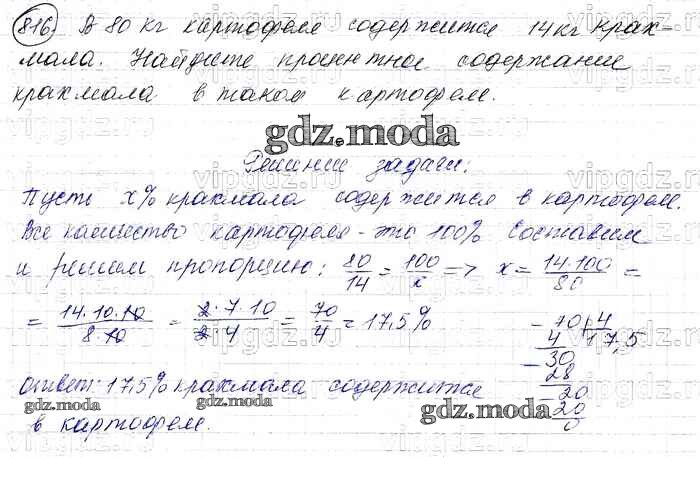 816) В 80 кг картофеля содержится 14 кг крах-
мала. Найдите процентное содержание
крахмала в таком картофеле.
gdz.moda
Решение задачи:
Пусть x% крахмала содержится в картофеле.
Все количество картофеля - это 100% Составим
и решим пропорцию: 80/14 = 100/x => x = 14·100/80 =
= 14·10·10/8·10 = 2·7·10/2·4 = 70/4 = 17,5%
- 70 | 4
4 | 17,5
- 30
28
- 20
20
0
Ответ: 17,5% крахмала содержится
в картофеле.
gdz.moda
gdz.moda
gdz.moda
vipgdz.ru